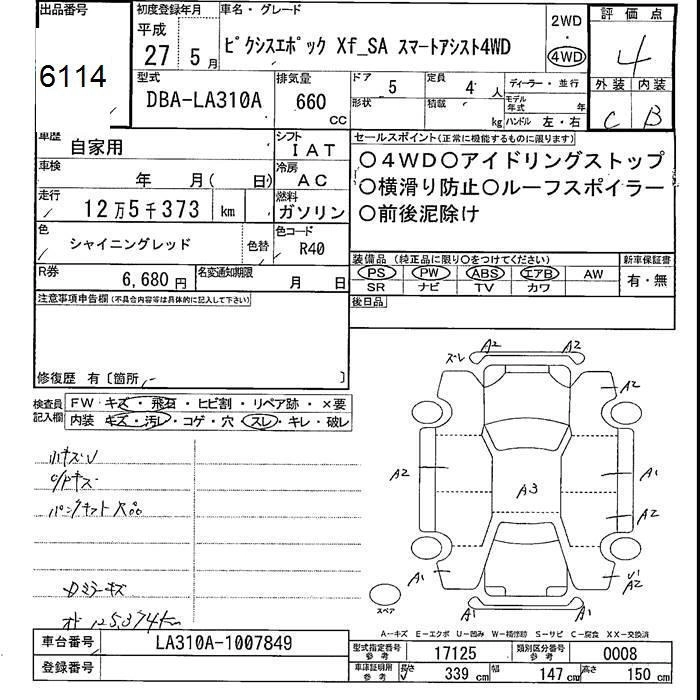 出品番号
6114
初度登録年月
平成
27 5月
車名・グレード
ピクシスエポック Xf_SA スマートアシスト4WD
2WD
・
4WD
評価点
4
型式
DBA-LA310A
排気量
660 CC
ドア 5
定員 4 人
ディーラー・並行
形状
積載 kg
モデル年式 年
ハンドル 左・右
外装 内装
C B
車歴
自家用
シフト
IAT
車検
年 月( 日)
冷房
AC
走行
12万5千373 km
燃料
ガソリン
色
シャイニングレッド
色替
色コード
R40
R券
6,680円
名変通知期限
月 日
セールスポイント(正常に機能するものに限ります)
○4WD○アイドリングストップ
○横滑り防止○ルーフスポイラー
○前後泥除け
装備品(純正品に限り○をつけてください)
新車保証書
PS PW ABS エアB AW
SR ナビ TV カワ
有・無
後日品
注意事項申告欄(不具合内容等は具体的に記入して下さい)
修復歴 有〔箇所 〕
検査員記入欄
FW・キズ・飛石・ヒビ割・リペア跡・×要
内装・キズ・汚レ・コゲ・穴・スレ・キレ・破レ
小キズU
パンクキット欠品
キズ
125,374km
ズレ A2 A2
A2
A2
A3
A1
A2
A1
A1 A1
U1
A2
スペア
A-キズ E-エクボ U-凹み W-補修跡 S-サビ C-腐食 XX-交換済
車台番号
LA310A-1007849
登録番号
型式指定番号 参考
17125
類別区分番号 参考
0008
車庫証明用 参考
長さ 339 cm
幅 147 cm
高さ 150 cm